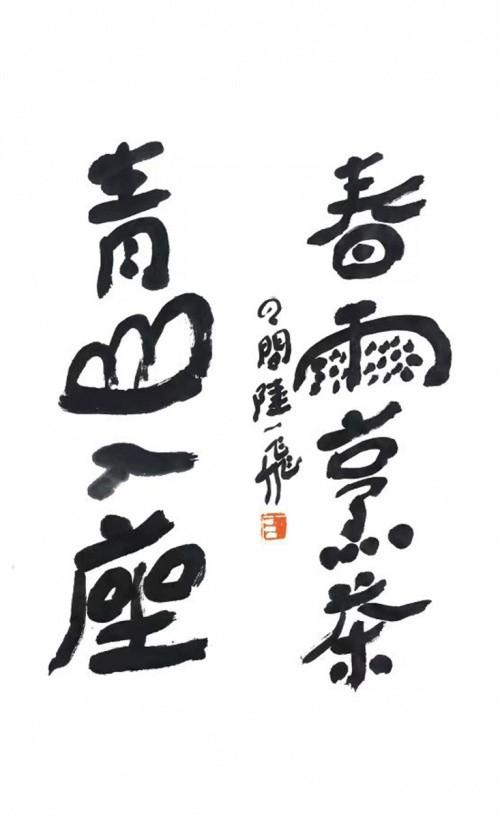 春雨烹茶
青山入座
間陸一飛